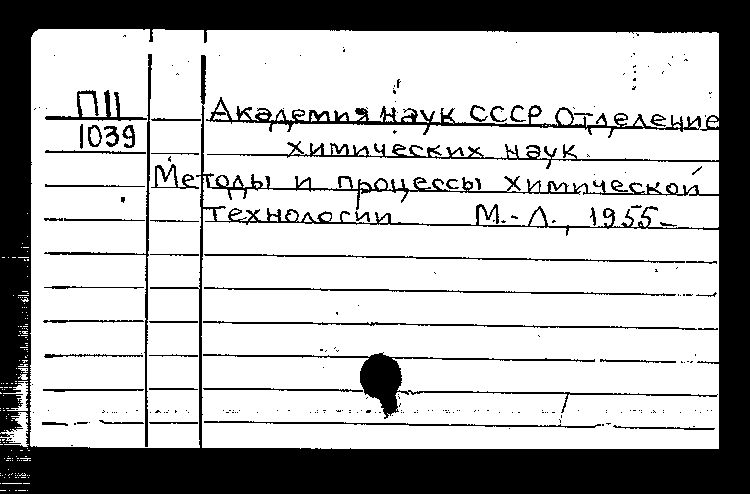 ПII
1039
Академия наук СССР Отделение
химических наук.
Методы и процессы химической
технологии. М.-Л., 1955-